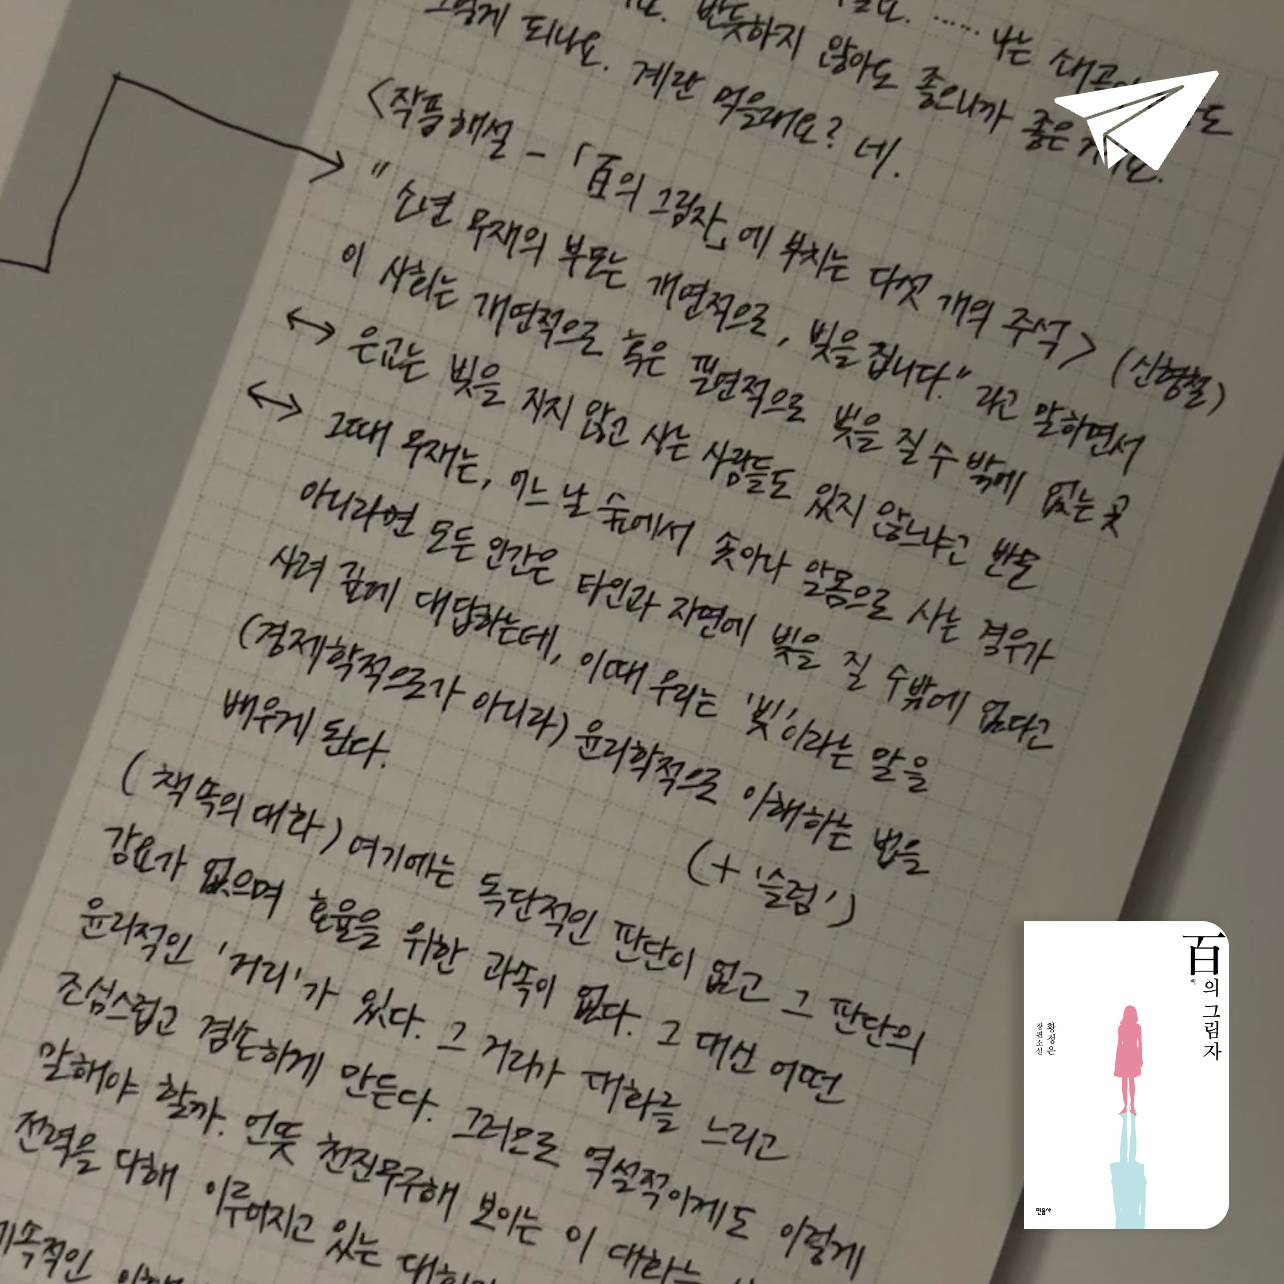 반듯하지 않아도 좋으니까 좋은
되나요. 계란 먹을래요? 네.
<작품해설 - 「百의 그림자」에 부치는 다섯 개의 주석> (신형철)
"소년 무재의 부모는 개연적으로, 빚을 집니다."라고 말하면서
이 사회는 개연적으로 혹은 필연적으로 빚을 질 수 밖에 없는 곳
↔ 은교는 빚을 지지 않고 사는 사람들도 있지 않느냐고 반문
↔ 그때 무재는, 어느 날 숲에서 솟아나 알몸으로 사는 경우가
아니라면 모든 인간은 타인과 자연에 빚을 질 수밖에 없다고
사려 깊게 대답하는데, 이때 우리는 '빚'이라는 말을
(경제학적으로가 아니라) 윤리학적으로 이해하는 법을
배우게 된다.
(+ '슬럼')
(책 속의 대화) 여기에는 독단적인 판단이 없고 그 판단의
강요가 없으며 효율을 위한 과속이 없다. 그 대신 어떤
윤리적인 '거리'가 있다. 그 거리가 대화를 느리고
조심스럽고 겸손하게 만든다. 그러므로 역설적이게도 이렇게
말해야 할까. 언뜻 천진무구해 보이는 이 대화는
전력을 다해 이루어지고 있는
百의 그림자
백
황정은
장편소설
민음사